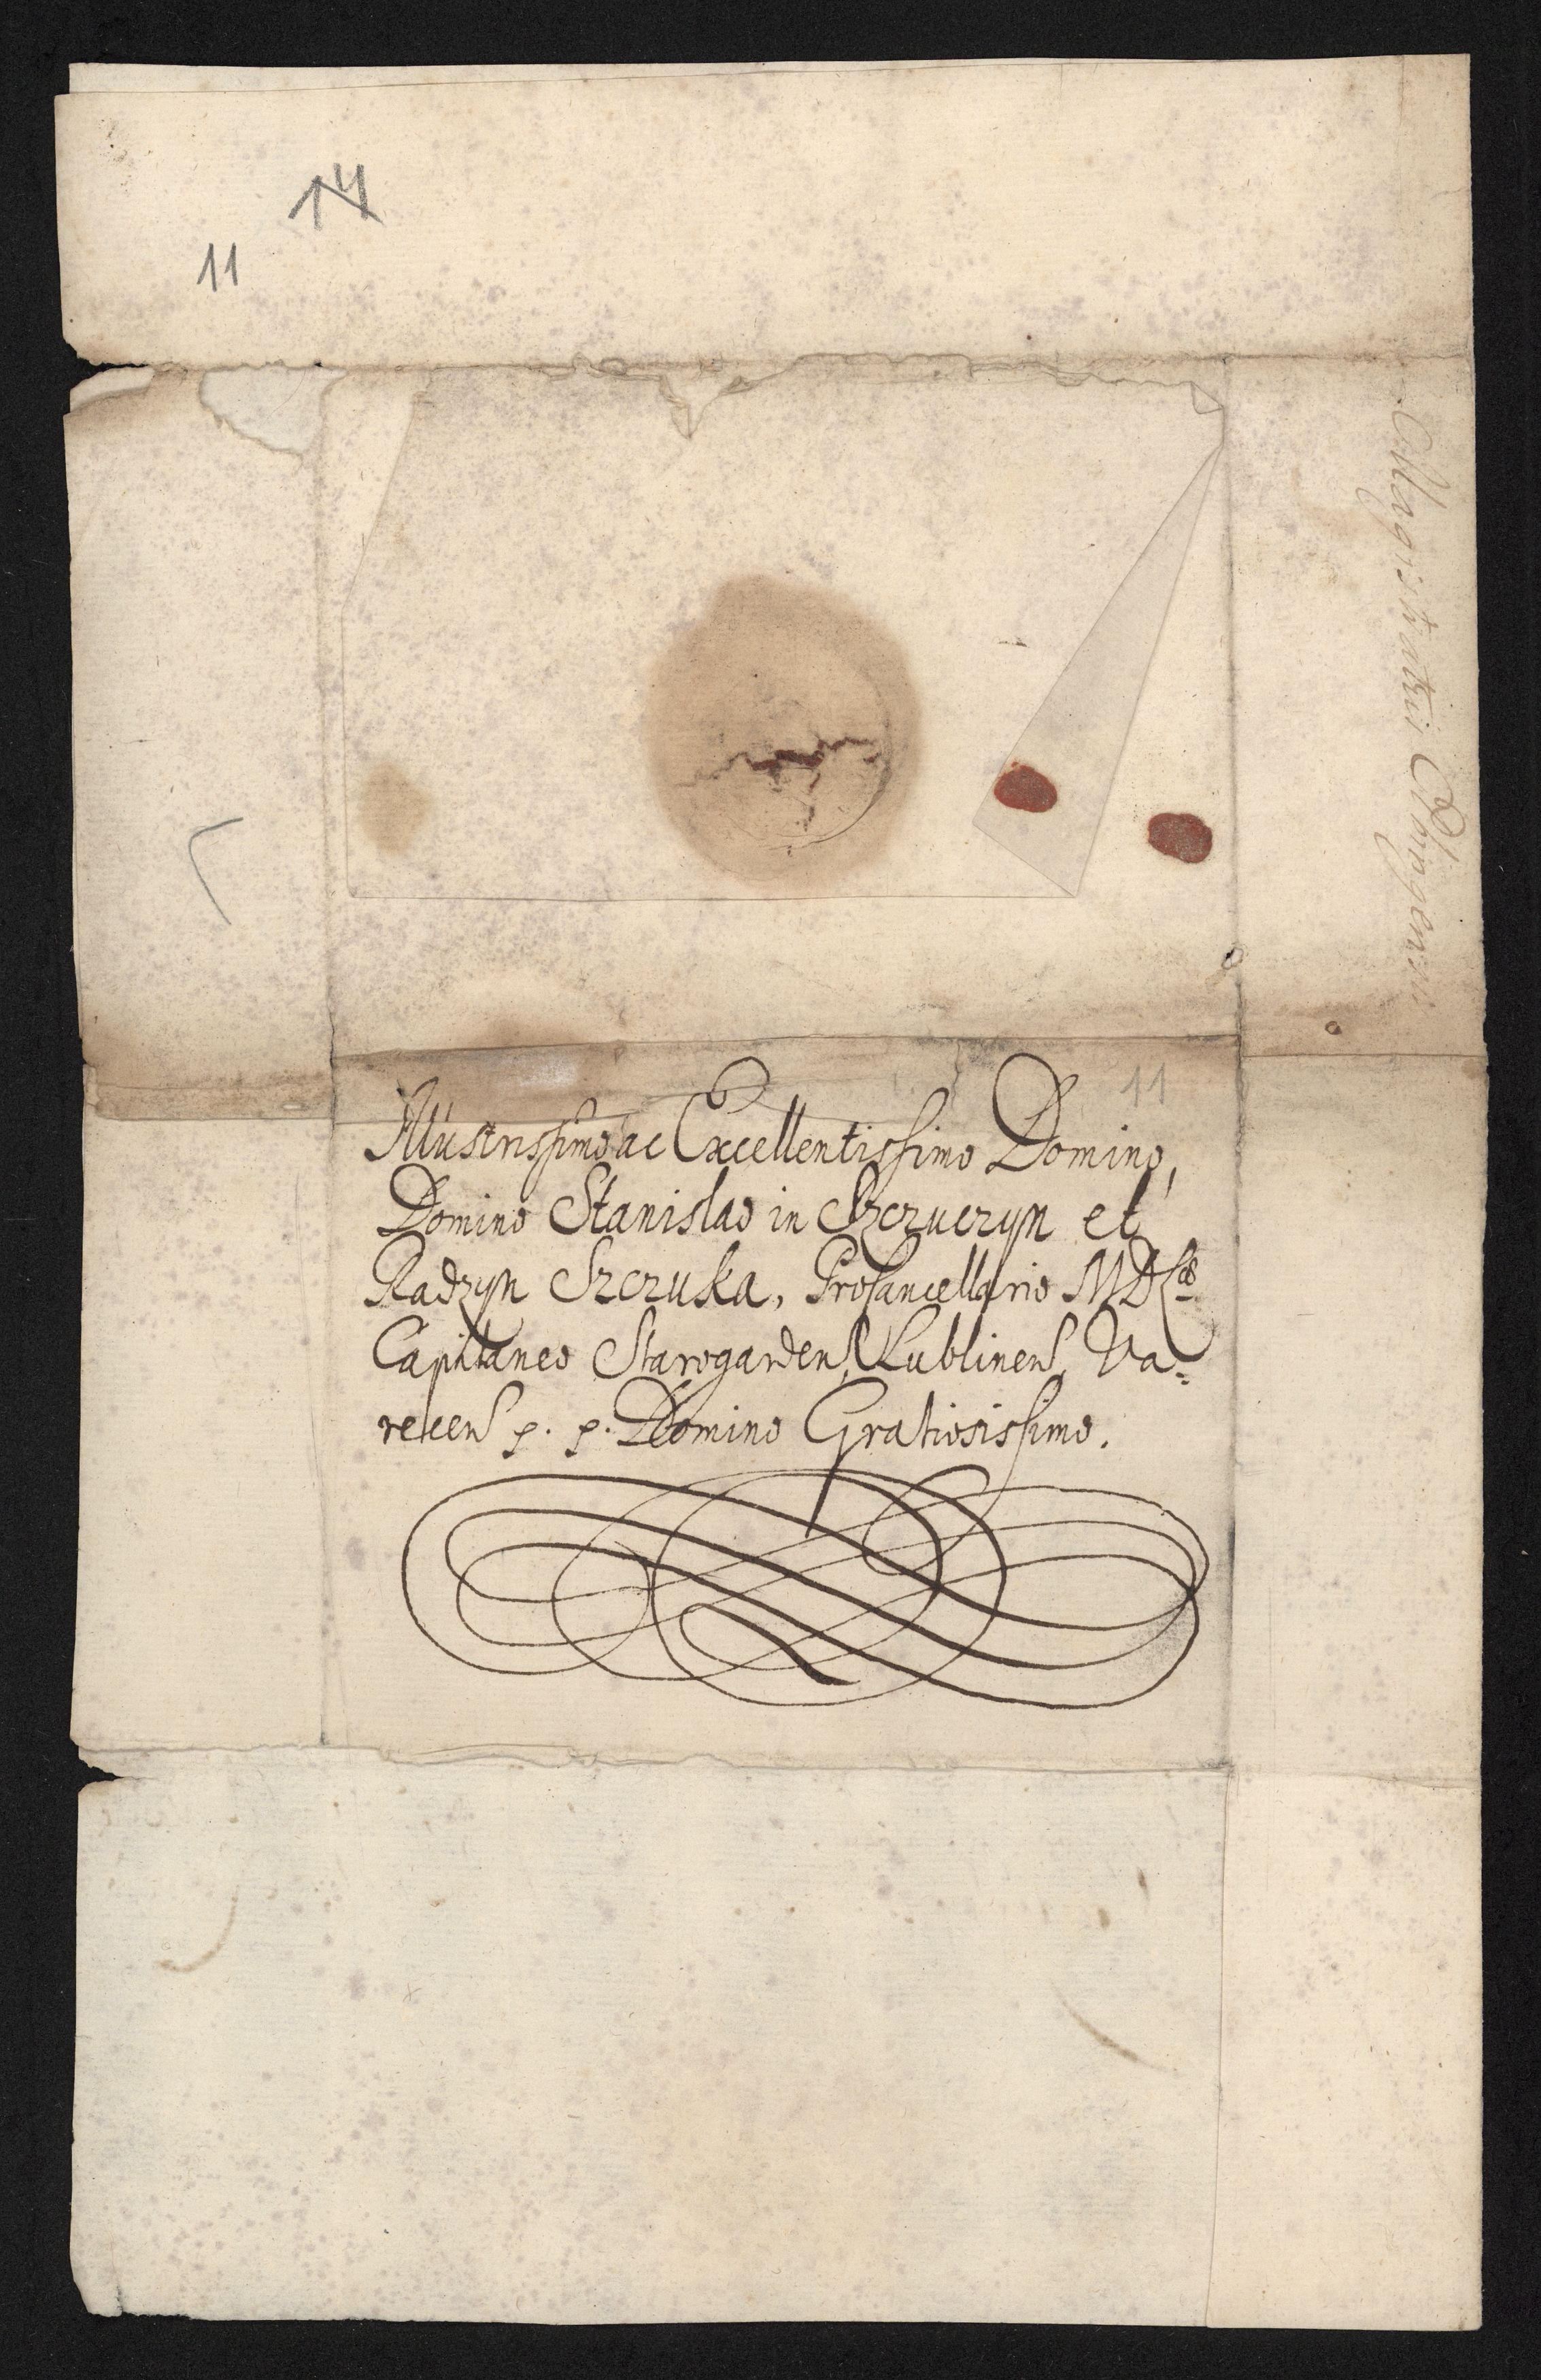 14
11
Magistratus Elbingensis
11
Illustrissimo ac Excellentissimo Domino,
Domino Stanislao in Szczuczyn et
Radzyn Szczuka, Procancellario MDL
Capitaneo Starogardens, Lublinens, Va=
recens p. p. Domino Gratiosissimo.